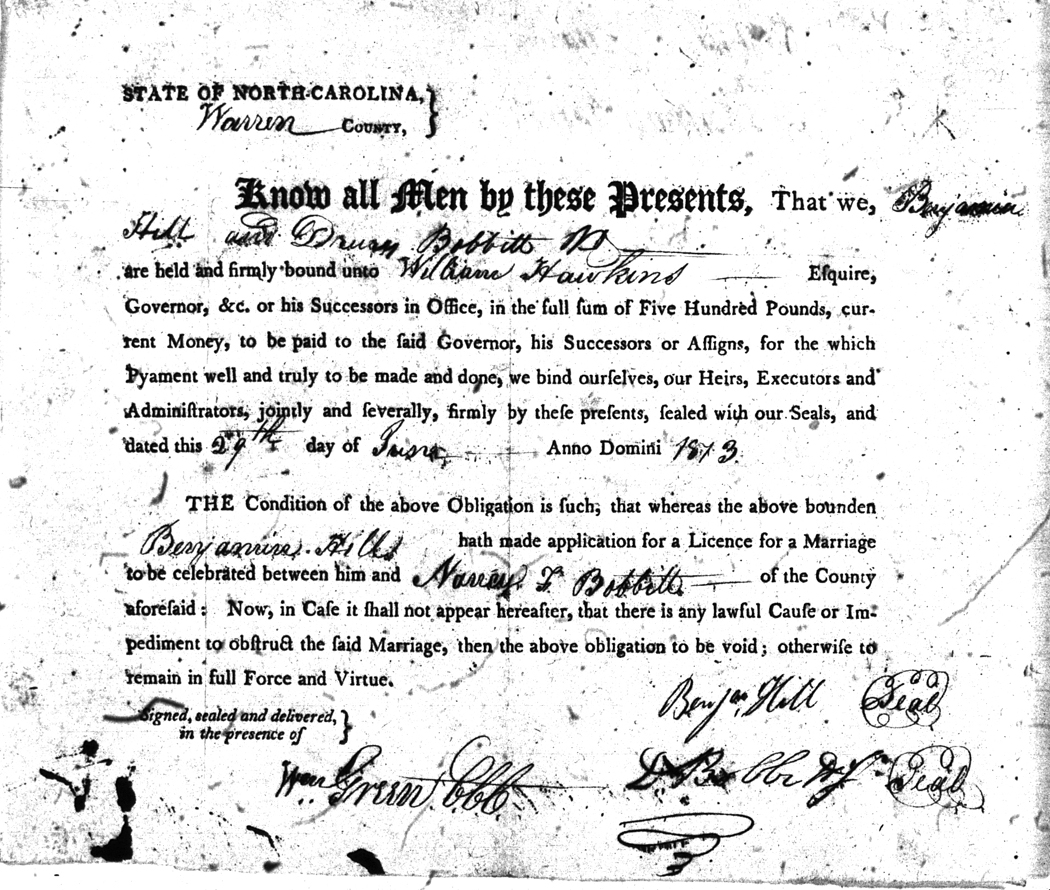 STATE OF NORTH-CAROLINA,
Warren COUNTY,
Know all Men by these Presents, That we, Benjamin
Hill and Drury Bobbitt
are held and firmly bound unto William Hawkins Eſquire,
Governor, &c. or his Succeſſors in Office, in the full ſum of Five Hundred Pounds, cur-
rent Money, to be paid to the ſaid Governor, his Succeſſors or Aſſigns, for the which
Pyament well and truly to be made and done, we bind ourſelves, our Heirs, Executors and
Adminiſtrators, jointly and ſeverally, firmly by theſe preſents, ſealed with our Seals, and
dated this 29th day of June Anno Domini 1813
THE Condition of the above Obligation is ſuch, that whereas the above bounden
Benjamin Hill hath made application for a Licence for a Marriage
to be celebrated between him and Nancy Bobbitt of the County
aforeſaid: Now, in Caſe it ſhall not appear hereafter, that there is any lawful Cauſe or Im-
pediment to obſtruct the ſaid Marriage, then the above obligation to be void; otherwiſe to
remain in full Force and Virtue.
Benjan. Hill Seal
Signed, sealed and delivered,
in the presence of
Wm Green D Bobbitt Seal